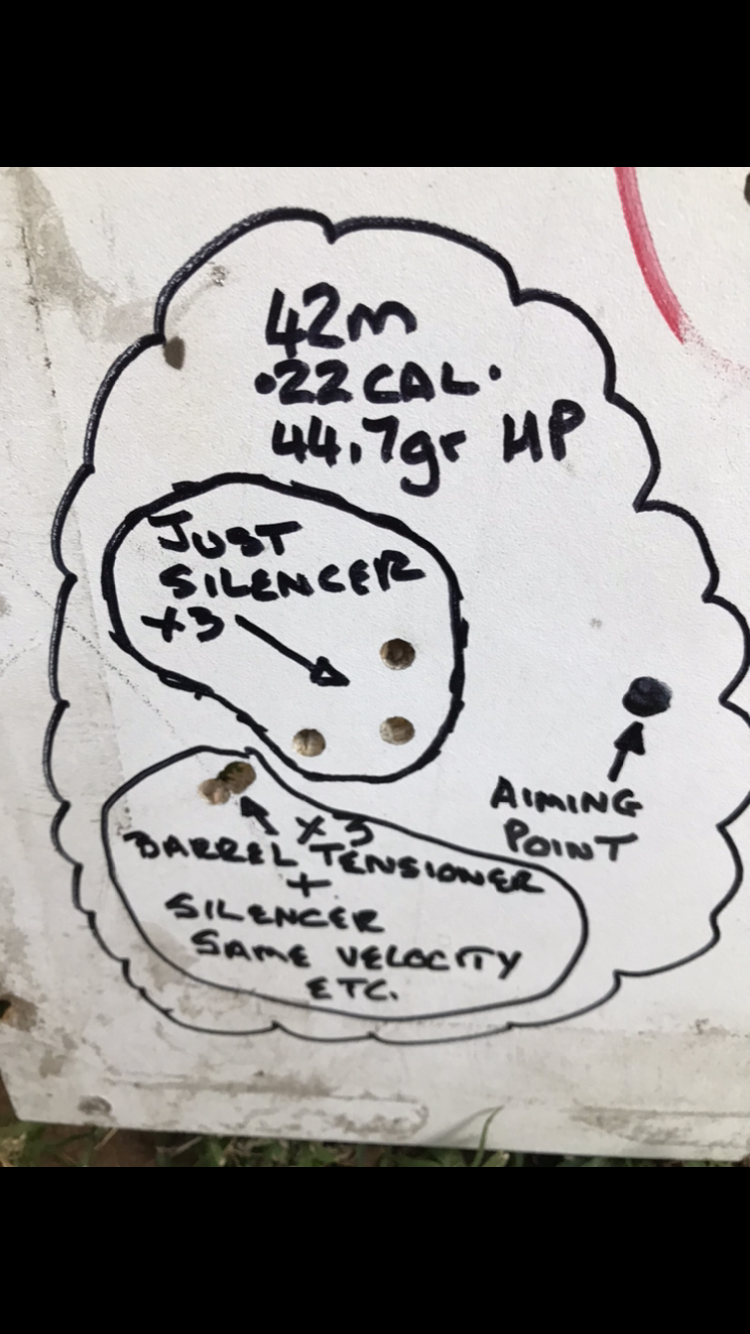 42m
.22 CAL.
44.7gr HP
JUST
SILENCER
x3
AIMING
POINT
x3
BARREL TENSIONER
+
SILENCER
SAME VELOCITY
ETC.